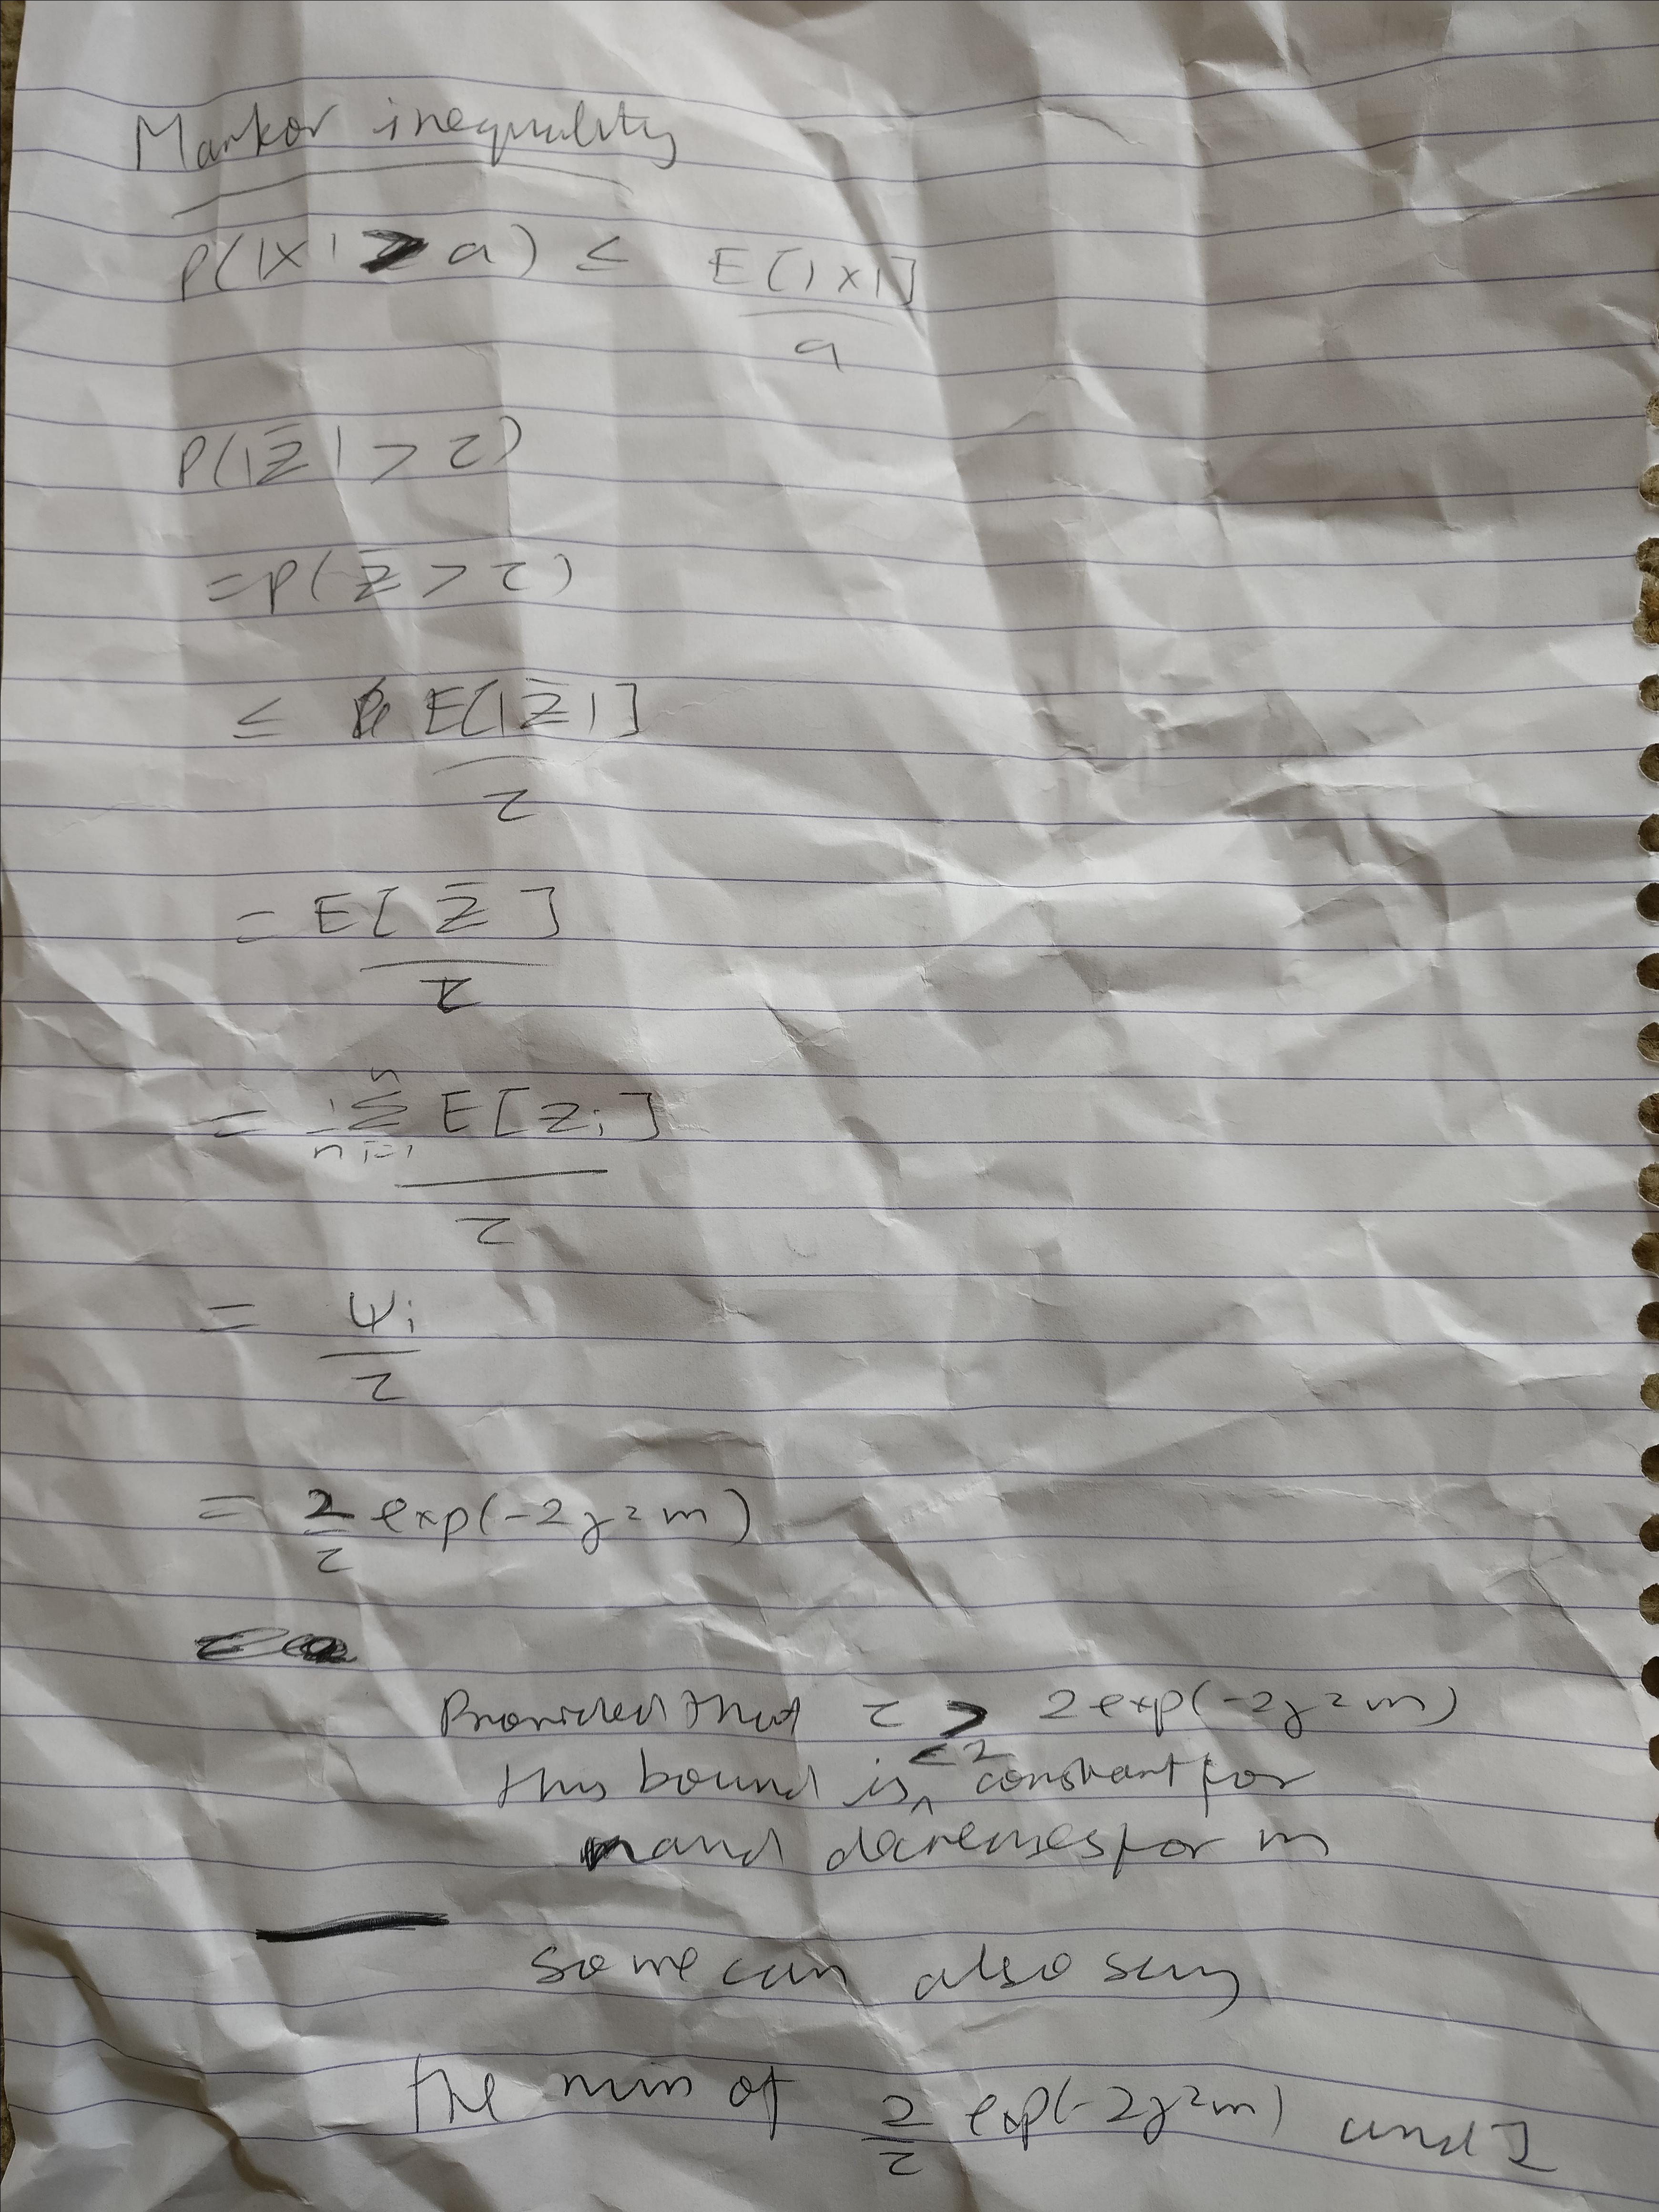 Markov inequality
P(|X| ≥ a) ≤ E[|X|]
a
P(|z̄| > τ)
= P(z̄ > τ)
≤ E[|z̄|]
τ
= E[z̄]
τ
= 1/n Σ_{i=1}^{n} E[z_i]
τ
= ψ_i
τ
= 2/τ exp(-2γ²m)
Provided that τ > 2 exp(-2γ²m)
this bound is <1 constant for
n and decreases for m
so we can also say
the min of 2/τ exp(-2γ²m) and 1